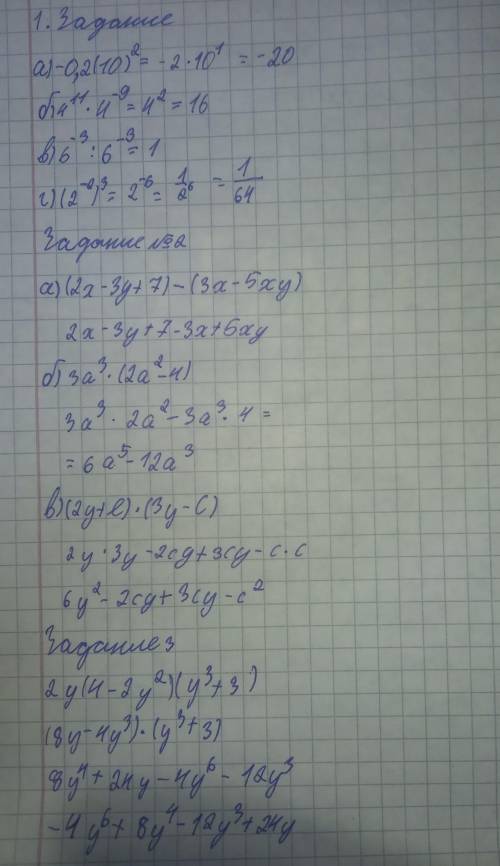 1. Задание
а) -0,2(10)² = -2·10¹ = -20
б) 4¹¹ · 4⁻⁹ = 4² = 16
в) 6⁻³ : 6⁻³ = 1
г) (2⁻²)³ = 2⁻⁶ = 1/2⁶ = 1/64
Задание №2
а) (2x - 3y + 7) - (3x - 5xy)
2x - 3y + 7 - 3x + 5xy
б) 3a³ · (2a² - 4)
3a³ · 2a² - 3a³ · 4 =
= 6a⁵ - 12a³
в) (2y + c) · (3y - c)
2y · 3y - 2cy + 3cy - c · c
6y² - 2cy + 3cy - c²
Задание 3
2y(4 - 2y²)(y³ + 3)
(8y - 4y³) · (y³ + 3)
8y⁴ + 24y - 4y⁶ - 12y³
-4y⁶ + 8y⁴ - 12y³ + 24y